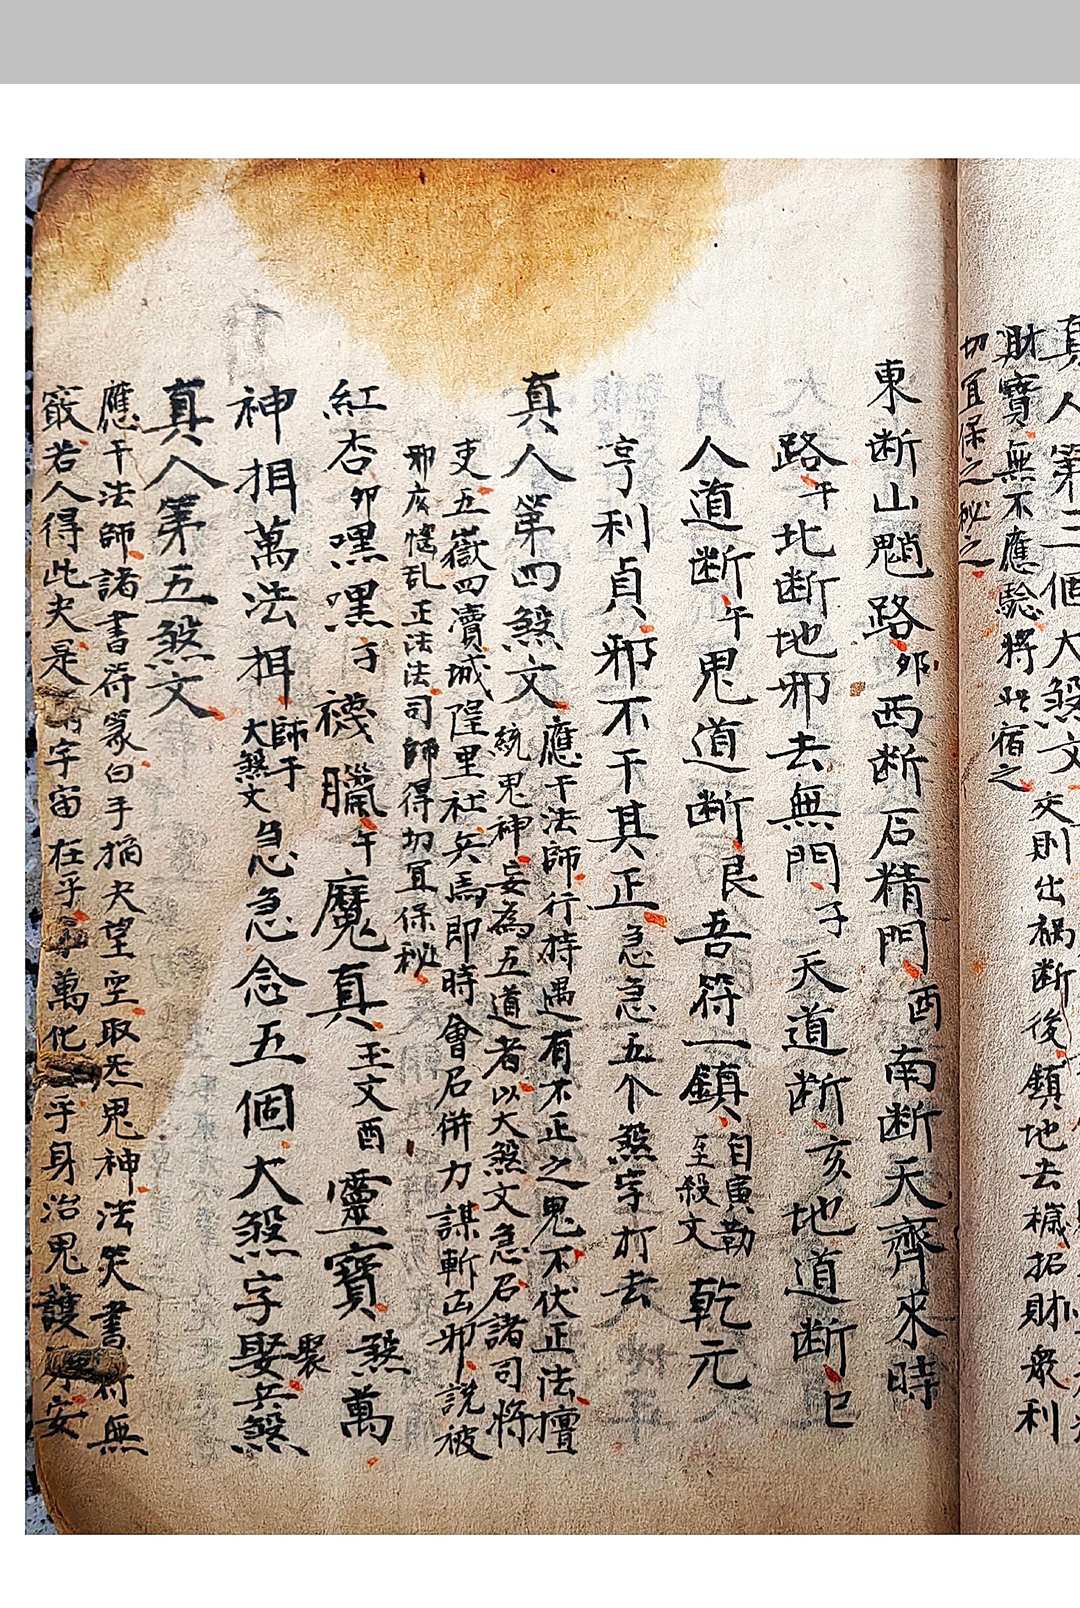 真人第三個大煞文
交則出禍断後鎮地去穢招財眾利
財寶無不應驗將此宿之
切宜保之秘之
東断山魈路卯西断石精門酉南断天齊來時
路午北断地邪去無門子天道断亥地道断巳
人道断午鬼道断艮吾符一鎮自寅勒至殺文乾元
亨利貞邪不干其正急急五个煞字打去
真人第四煞文應干法師行持遇有不正之鬼不伏正法壇
統鬼神妄為五道者以大煞文急召諸司將
吏五嶽四瀆城隍里社兵馬即時會召併力謀斬凶邪說被
邪広惑乱正法法司師得切宜保秘
紅杏卯嘿嘿子襪臘午魔真玉文酉靈寶煞萬
神揖萬法揖師于大煞文急急念五個大煞字聚兵煞
真人第五煞文
應干法師諸書符篆白手掐夬望空取炁鬼神法笑書符無
竅若人得此夬是宇宙在乎手萬化乎身治鬼護身安